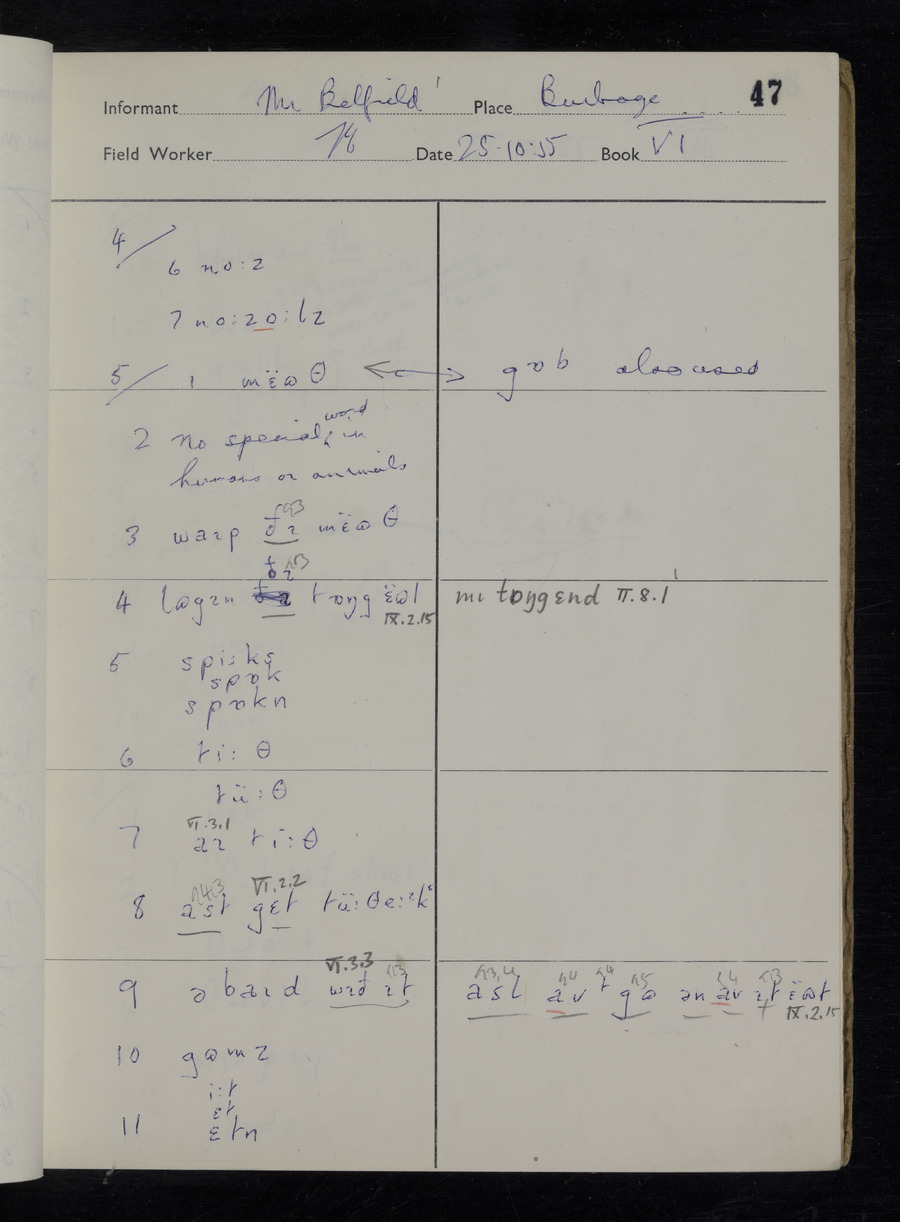 47
Informant Mr Belfield Place Burbage
Field Worker Date 25-10-55 Book VI
4/
6 no:z
7 no:zo:lz
5/ 1 mëɷθ gɒb also used
2 no special word in
humans or animals
3 waɪp ðɪ mëɷθ
ðɪ
4 lɷgɪn tɒŋg ëɷt mɪ tɒŋgɛnd VI.8.1
IX.2.15
5 spi:ks
spɒk
spɒkn
6 ti:θ
tü:θ
VI.3.1
7 aɪ ti:θ
VI.2.2
8 ast gɛt tü:θe:ɪk
VI.3.3
9 əbaɪd wɪð ɪt ast av t gɷ ən av ɪt ëɷt
IX.2.15
10 gɷmz
i:t
ɛt
11 ɛtn